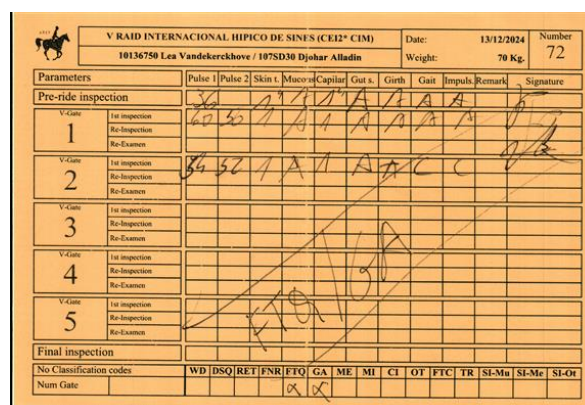 V RAID INTERNACIONAL HIPICO DE SINES (CEI2* CIM) Date: 13/12/2024 Number
10136750 Lea Vandekerckhove / 107SD30 Djohar Alladin Weight: 70 Kg. 72
Parameters Pulse 1 Pulse 2 Skin t. Mucous Capilar Gut s. Girth Gait Impuls. Remark Signature
Pre-ride inspection 36 1" 1 1" A A A A
V-Gate 1 1st inspection 60 50 1 A 1 A A A A
Re-Inspection
Re-Examen
V-Gate 2 1st inspection 54 52 1 A 1 A A C C
Re-Inspection
Re-Examen
V-Gate 3 1st inspection
Re-Inspection
Re-Examen
V-Gate 4 1st inspection
Re-Inspection
Re-Examen
FTQ/GA
V-Gate 5 1st inspection
Re-Inspection
Re-Examen
Final inspection
No Classification codes WD DSQ RET FNR FTQ GA ME MI CI OT FTC TR SI-Mu SI-Me SI-Ot
Num Gate